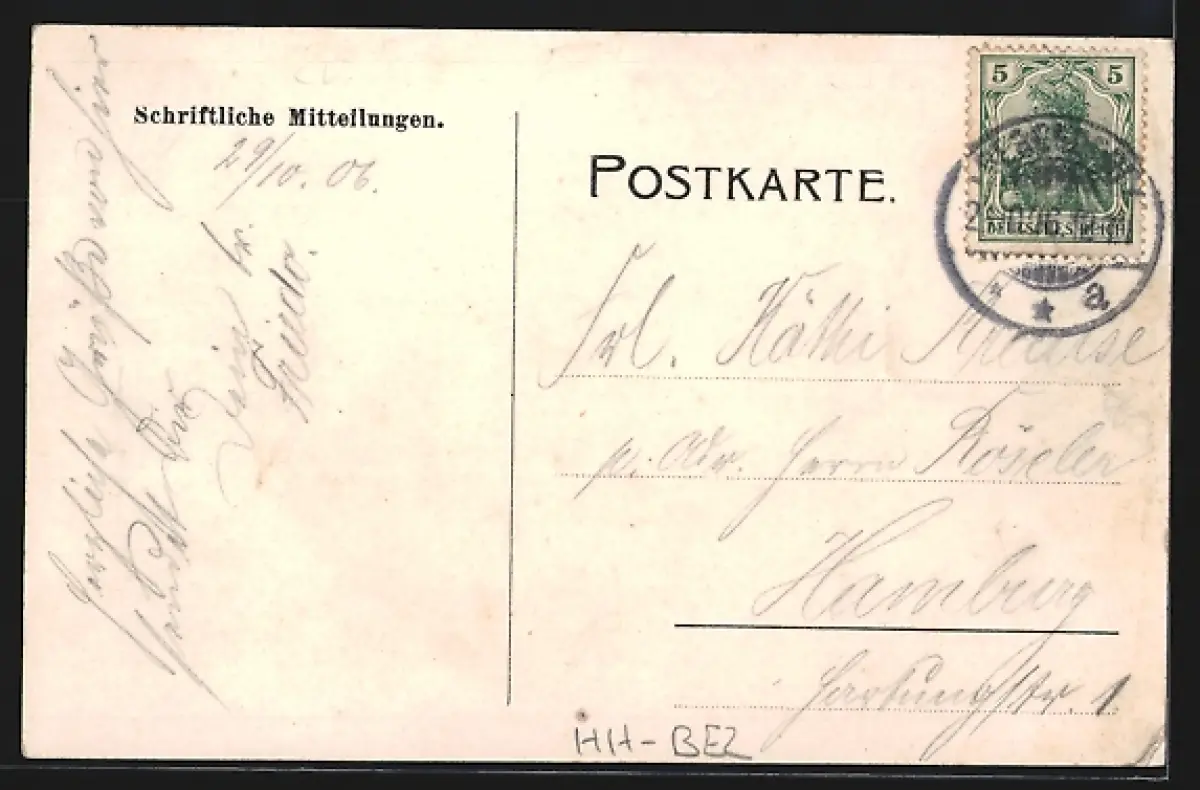 Schriftliche Mitteilungen.
29/10. 06.
Herzliche Grüße von hier
sendet Dir
Dein tr.
Frieda.
POSTKARTE.
5 5
DEUTSCHES REICH
a
Frl. Käthi
p. Adr. Herrn
Hamburg
Hartungstr. 1.
HH-BEZ